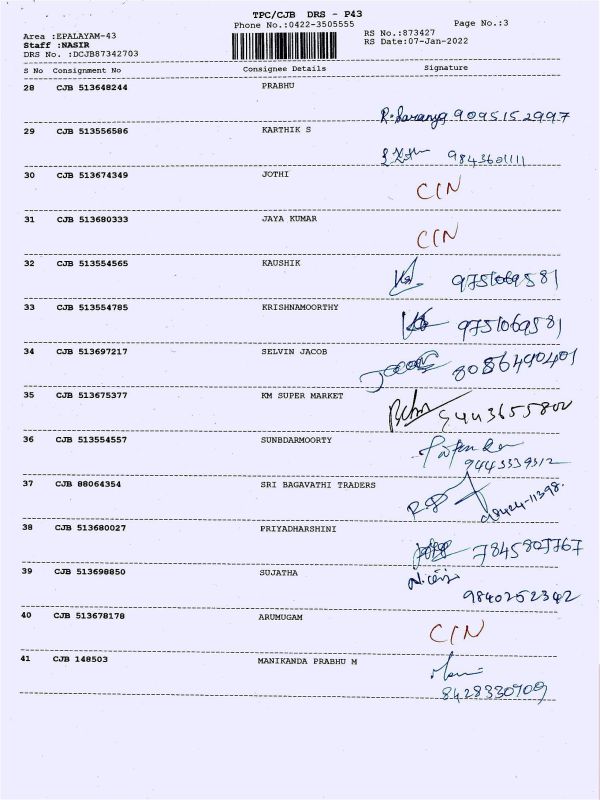 TPC/CJB DRS - P43
Phone No.:0422-3505555
Page No.:3
Area :EPALAYAM-43
RS No.:873427
Staff :NASIR
RS Date:07-Jan-2022
DRS No. :DCJB87342703
S No Consignment No Consignee Details Signature
28 CJB 513648244 PRABHU
R. Saranya 9095152997
29 CJB 513556586 KARTHIK S
9843601111
30 CJB 513674349 JOTHI
CIN
31 CJB 513680333 JAYA KUMAR
CIN
32 CJB 513554565 KAUSHIK
9751069581
33 CJB 513554785 KRISHNAMOORTHY
9751069581
34 CJB 513697217 SELVIN JACOB
8086490401
35 CJB 513675377 KM SUPER MARKET
9443655802
36 CJB 513554557 SUNBDARMOORTY
9443339312
37 CJB 88064354 SRI BAGAVATHI TRADERS
38 CJB 513680027 PRIYADHARSHINI
7845807767
39 CJB 513698850 SUJATHA
9840252342
40 CJB 513678178 ARUMUGAM
CIN
41 CJB 148503 MANIKANDA PRABHU M
8428330909